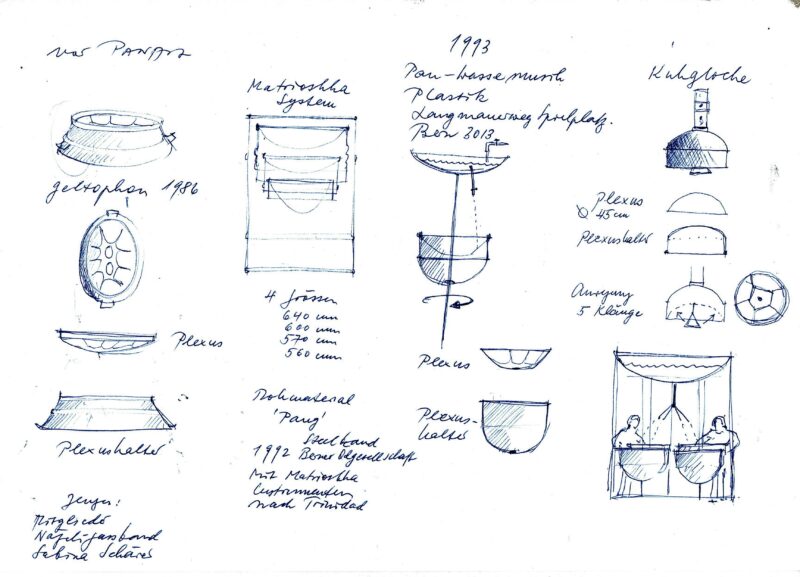 vor PANArt
geltophon 1986
Plexus
Plexushalter
Zeugen:
Mitglieder
Nägeligassband
Sabina Schärer
Matrioshka
System
4 Grössen
640 mm
600 mm
570 mm
560 mm
Rohmaterial
'Pang'
Steelband
1992 Berner Oelgesellschaft
Mit Matrioshka
Instrumenten
nach Trinidad
1993
Pan-Wassermusik
Plastik
Langmauerweg Spielplatz.
Bern 3013
Plexus
Plexus-
halter
Kuhglocke
Plexus
Ø 45 cm
Plexushalter
Anregung
5 Klänge